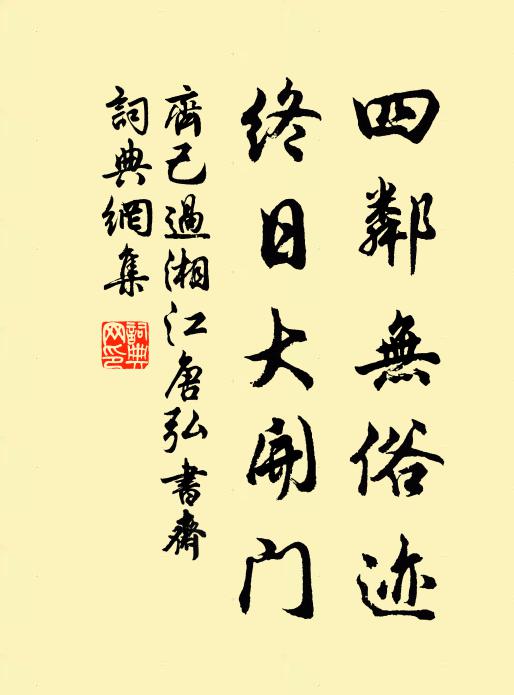 四鄰無俗迹
終日大開门
齊己過湘江唐弘書齋
詞典網集
詞典网印